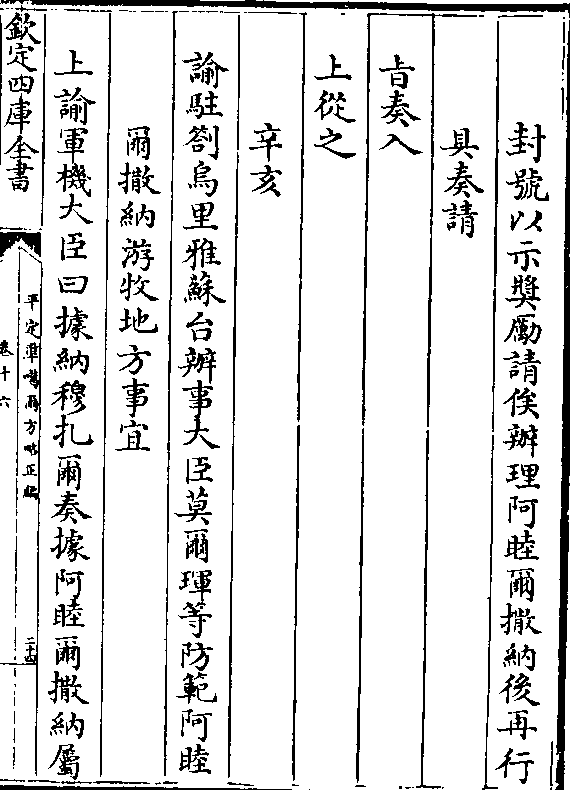 封號以示奬勵請俟辦理阿睦爾撒納後再行
具奏請
旨奏入
上從之
辛亥
諭駐劄烏里雅蘇台辦事大臣莫爾琿等防範阿睦
爾撒納游牧地方事宜
上諭軍機大臣曰據納穆扎爾奏據阿睦爾撒納屬
欽定四庫全書
平定凖噶爾方略正編
卷十六
二十四